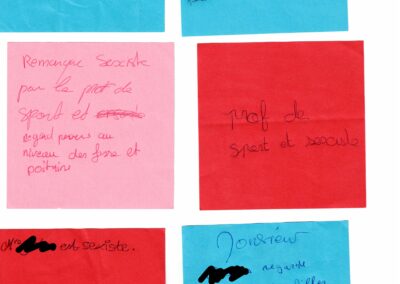 Remarque Sexiste
par le prof de
sport et
regard pervers au
niveau des fesse et
poitrine
prof de
sport et sexiste
est sexiste.
Monsieur
regarde
filles